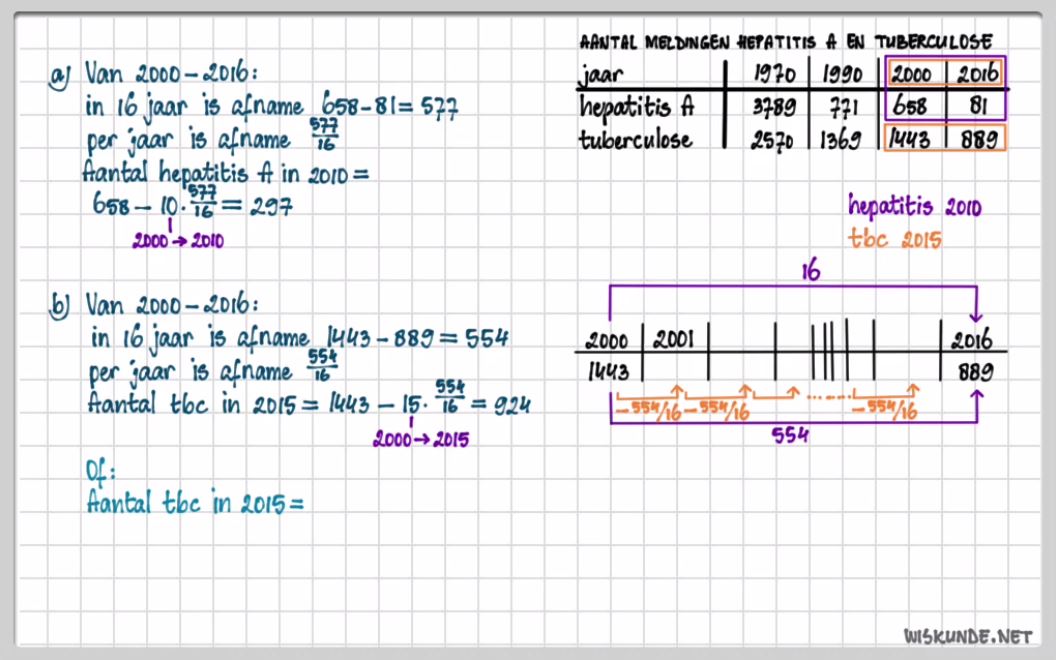 a) Van 2000 – 2016:
in 16 jaar is afname 658 – 81 = 577
per jaar is afname 577/16
Aantal hepatitis A in 2010 =
658 – 10 · 577/16 = 297
2000 → 2010
b) Van 2000 – 2016:
in 16 jaar is afname 1443 – 889 = 554
per jaar is afname 554/16
Aantal tbc in 2015 = 1443 – 15 · 554/16 = 924
2000 → 2015
Of:
Aantal tbc in 2015 =
AANTAL MELDINGEN HEPATITIS A EN TUBERCULOSE
jaar 1970 1990 2000 2016
hepatitis A 3789 771 658 81
tuberculose 2570 1369 1443 889
hepatitis 2010
tbc 2015
16
2000 2001 2016
1443 889
–554/16 –554/16 ...... –554/16
554
WISKUNDE.NET